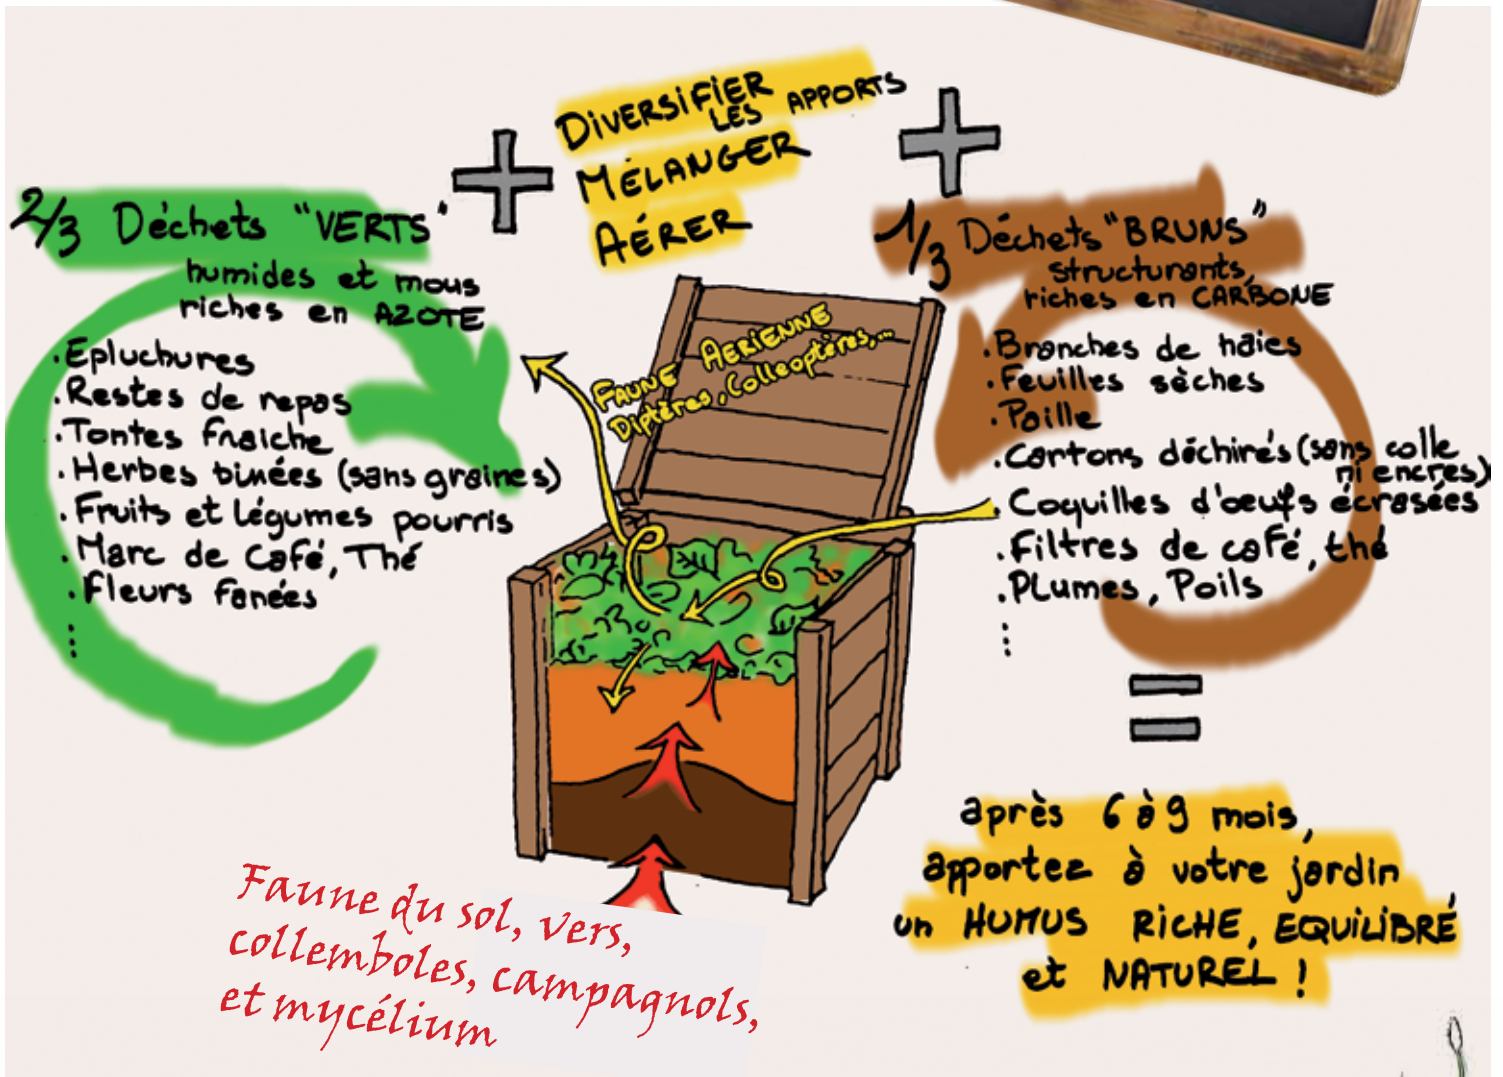 DIVERSIFIER
LES APPORTS
MÉLANGER
AÉRER
2/3 Déchets "VERTS"
humides et mous
riches en AZOTE
. Epluchures
. Restes de repas
. Tontes fraiche
. Herbes binées (sans graines)
. Fruits et légumes pourris
. Marc de Café, Thé
. Fleurs fanées
...
FAUNE AERIENNE
Diptères, Colleoptères,...
1/3 Déchets "BRUNS"
structurants,
riches en CARBONE
. Branches de haies
. Feuilles sèches
. Paille
. Cartons déchirés (sans colle
ni encres)
. Coquilles d'oeufs écrasées
. Filtres de café, thé
. Plumes, Poils
...
après 6 à 9 mois,
apportez à votre jardin
un HUMUS RICHE, EQUILIBRÉ
et NATUREL !
Faune du sol, vers,
collemboles, campagnols,
et mycélium